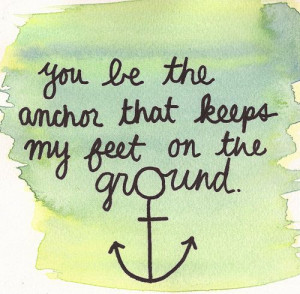 you be the
anchor that keeps
my feet on the
ground.